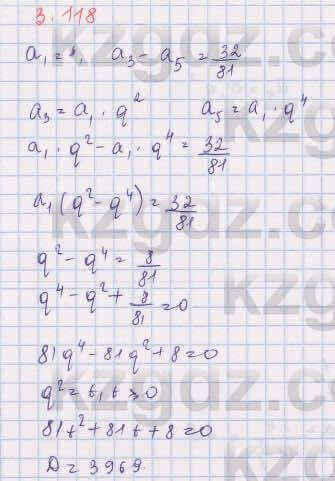 3.118
a₁ = 4, a₃ - a₅ = 32/81
a₃ = a₁ · q² a₅ = a₁ · q⁴
a₁ · q² - a₁ · q⁴ = 32/81
a₁ (q² - q⁴) = 32/81
q² - q⁴ = 8/81
q⁴ - q² + 8/81 = 0
81q⁴ - 81q² + 8 = 0
q² = t, t ≥ 0
81t² + 81t + 8 = 0
D = 3969